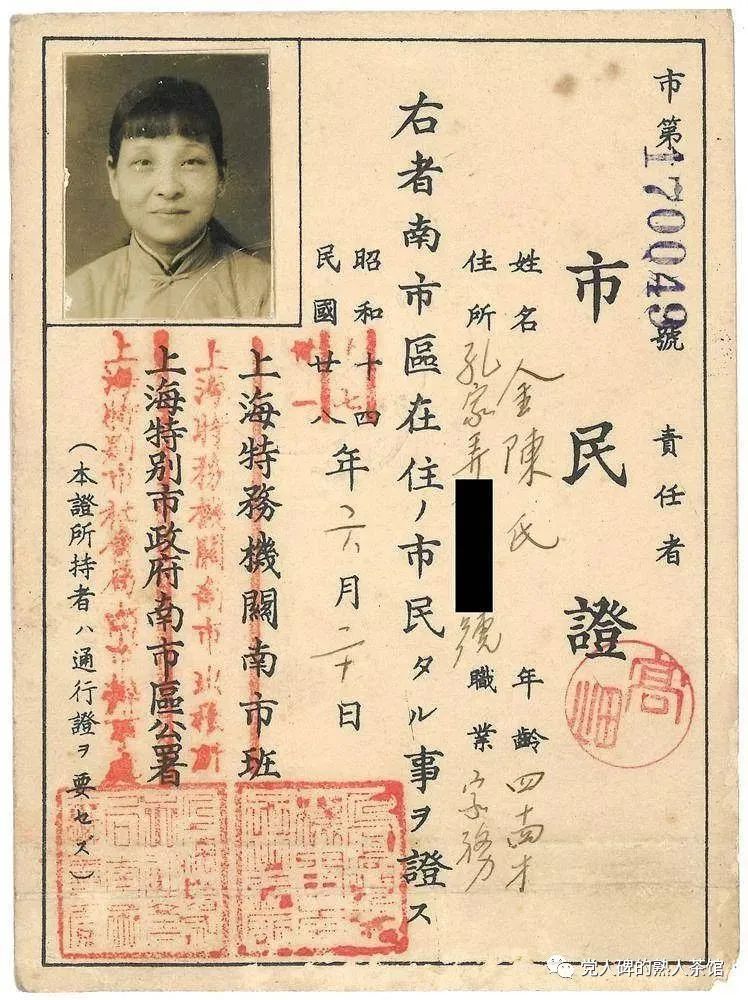 市第170049號
責任者
市民證
高畑
姓名 金陳氏 年齡 四 才
住所 孔家弄 號 職業 家務
右者南市區在住ノ市民タル事ヲ證ス
昭和十四
民國廿八
年六月二十日
上海特務機關南市班
上海特務機關南市
上海特別市政府南市區公署
（本證所持者ハ通行證ヲ要セズ）
党人碑的熟人茶馆